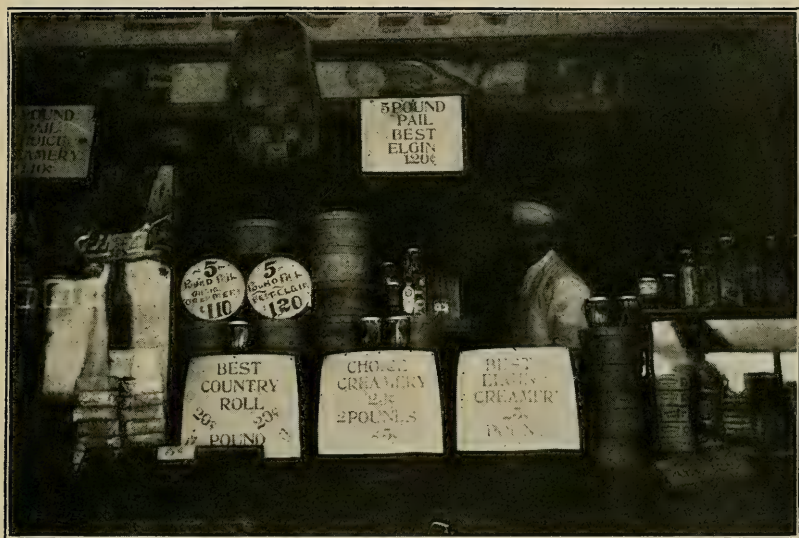 POUND
PAIL
5 POUND
PAIL
BEST
ELGIN
120¢
5
POUND PAIL
CREAMERY
$110
5
POUND PAIL
BEST ELGIN
120
BEST
COUNTRY
ROLL
20¢ 20¢
POUND
CHOICE
CREAMERY
2 POUNDS
BEST
ELGIN
CREAMERY